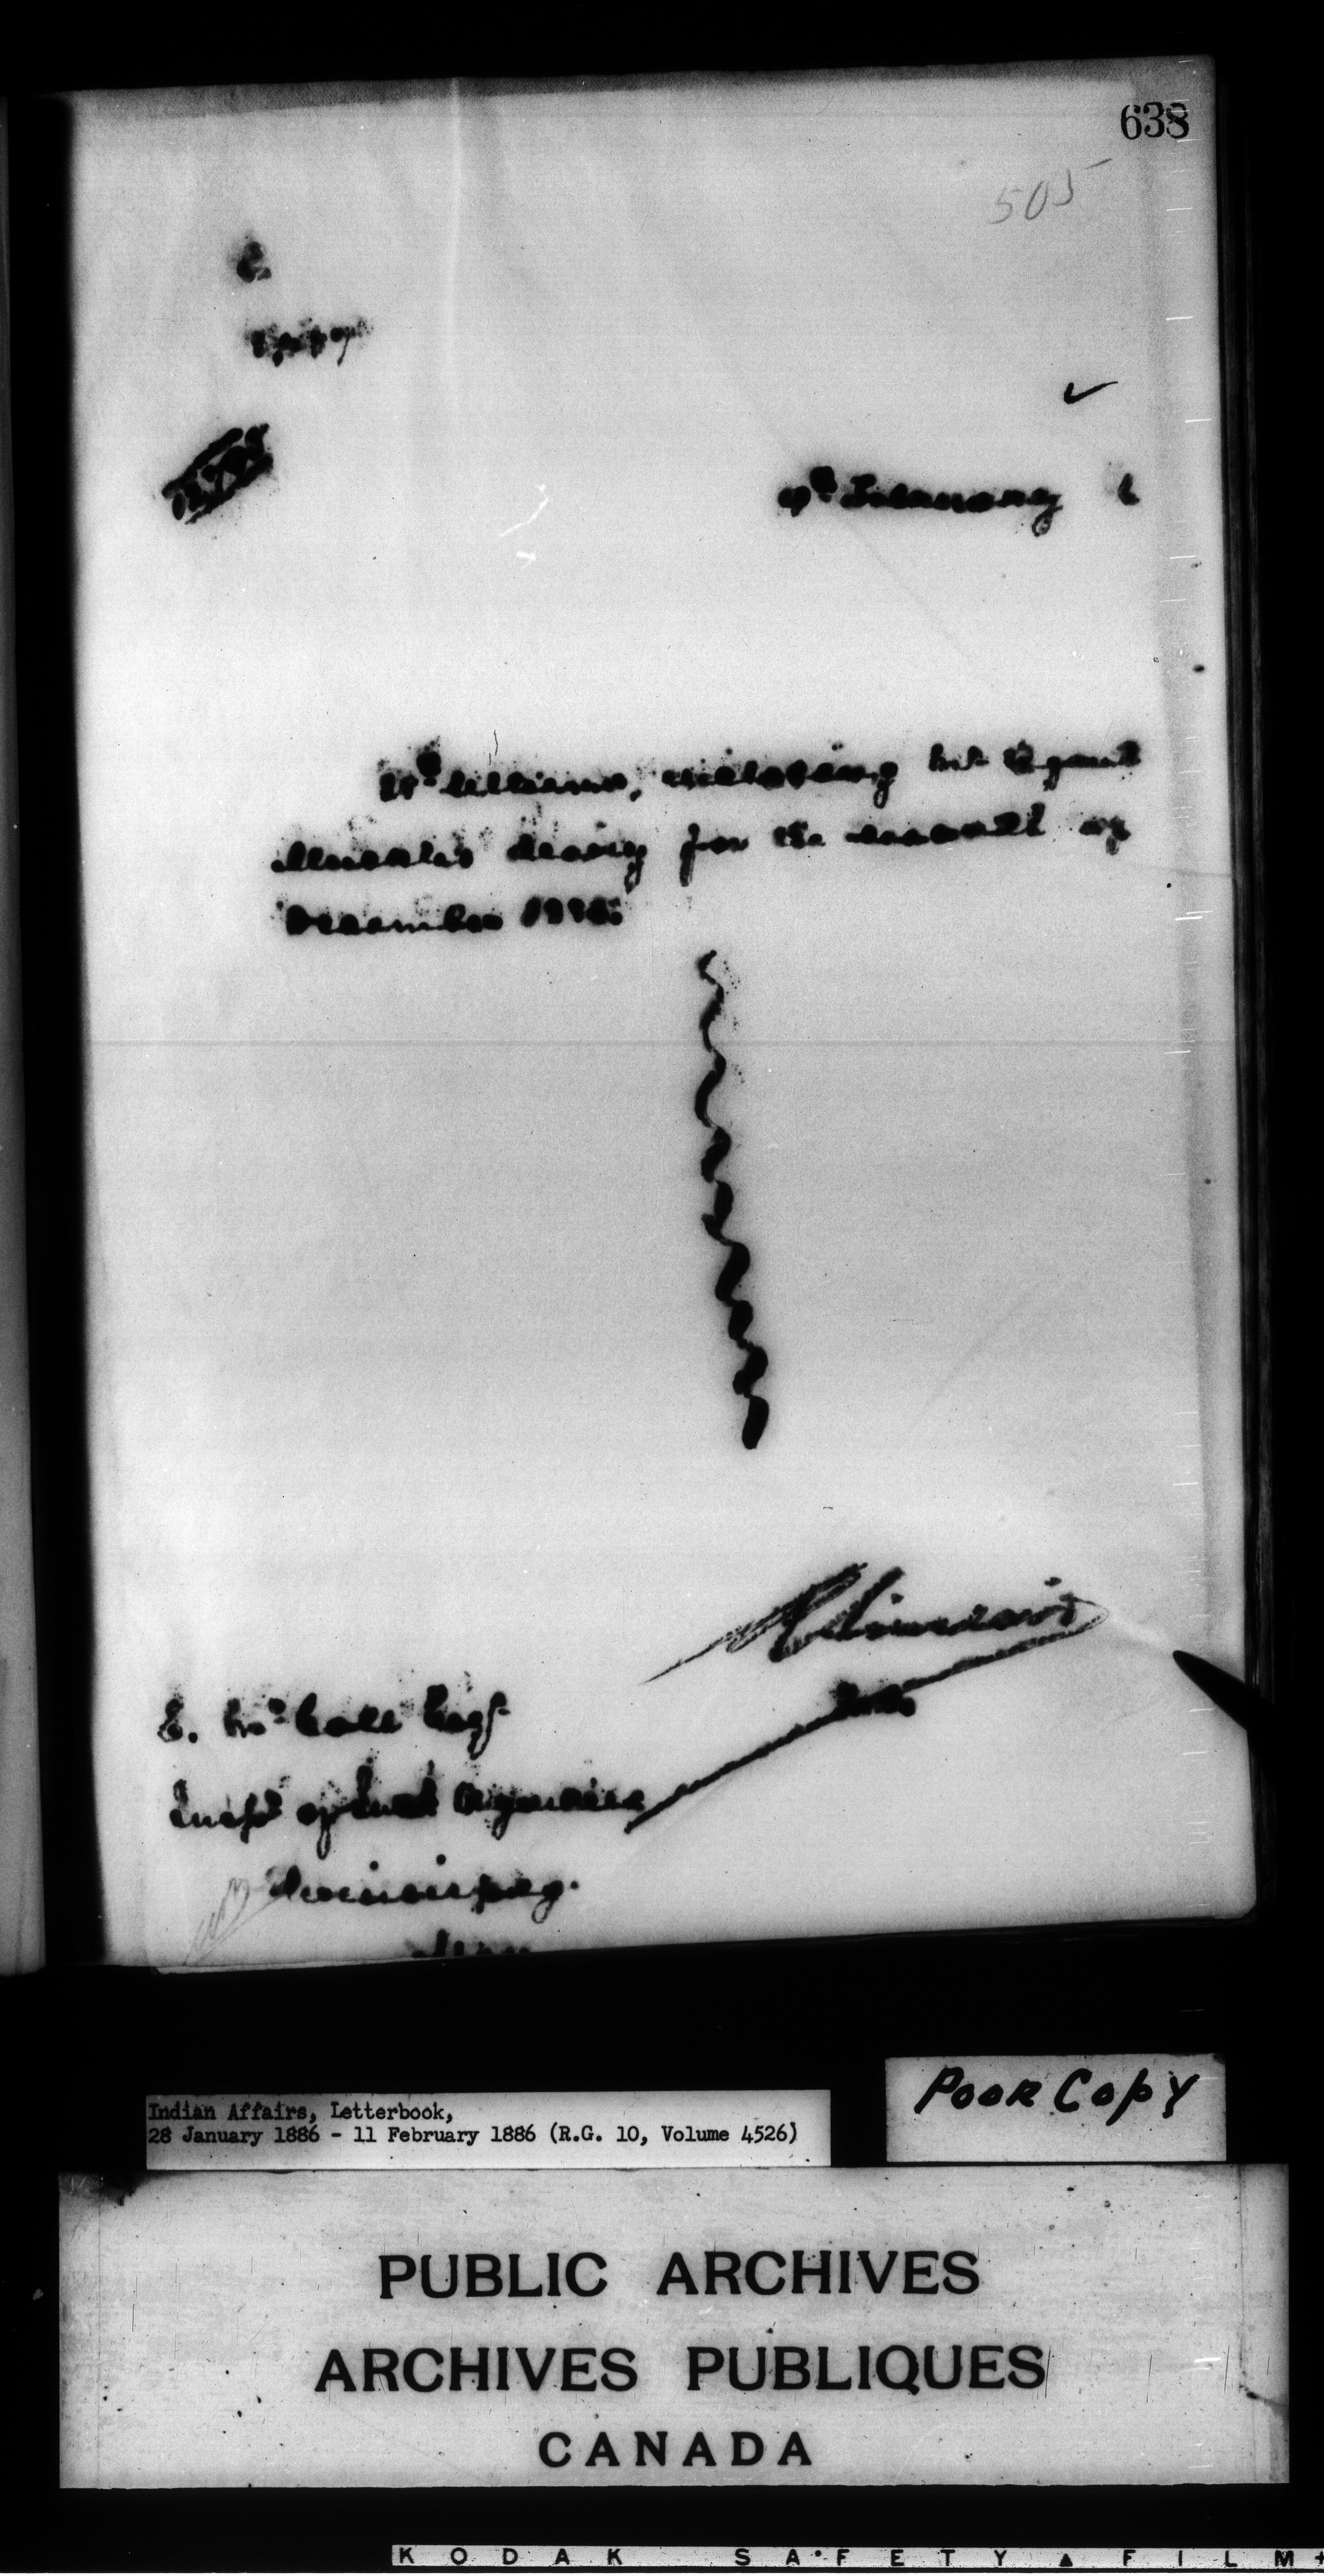 638
505
9th February 6
31st ultimo, enclosing Mr Agent
diary for the month of
December 1885.
E. McColl Esqr
Inspr of Indn Agencies
Winnipeg.
Man
Indian Affairs, Letterbook,
28 January 1886 - 11 February 1886 (R.G. 10, Volume 4526)
POOR COPY
PUBLIC ARCHIVES
ARCHIVES PUBLIQUES
CANADA
KODAK SAFETY FILM